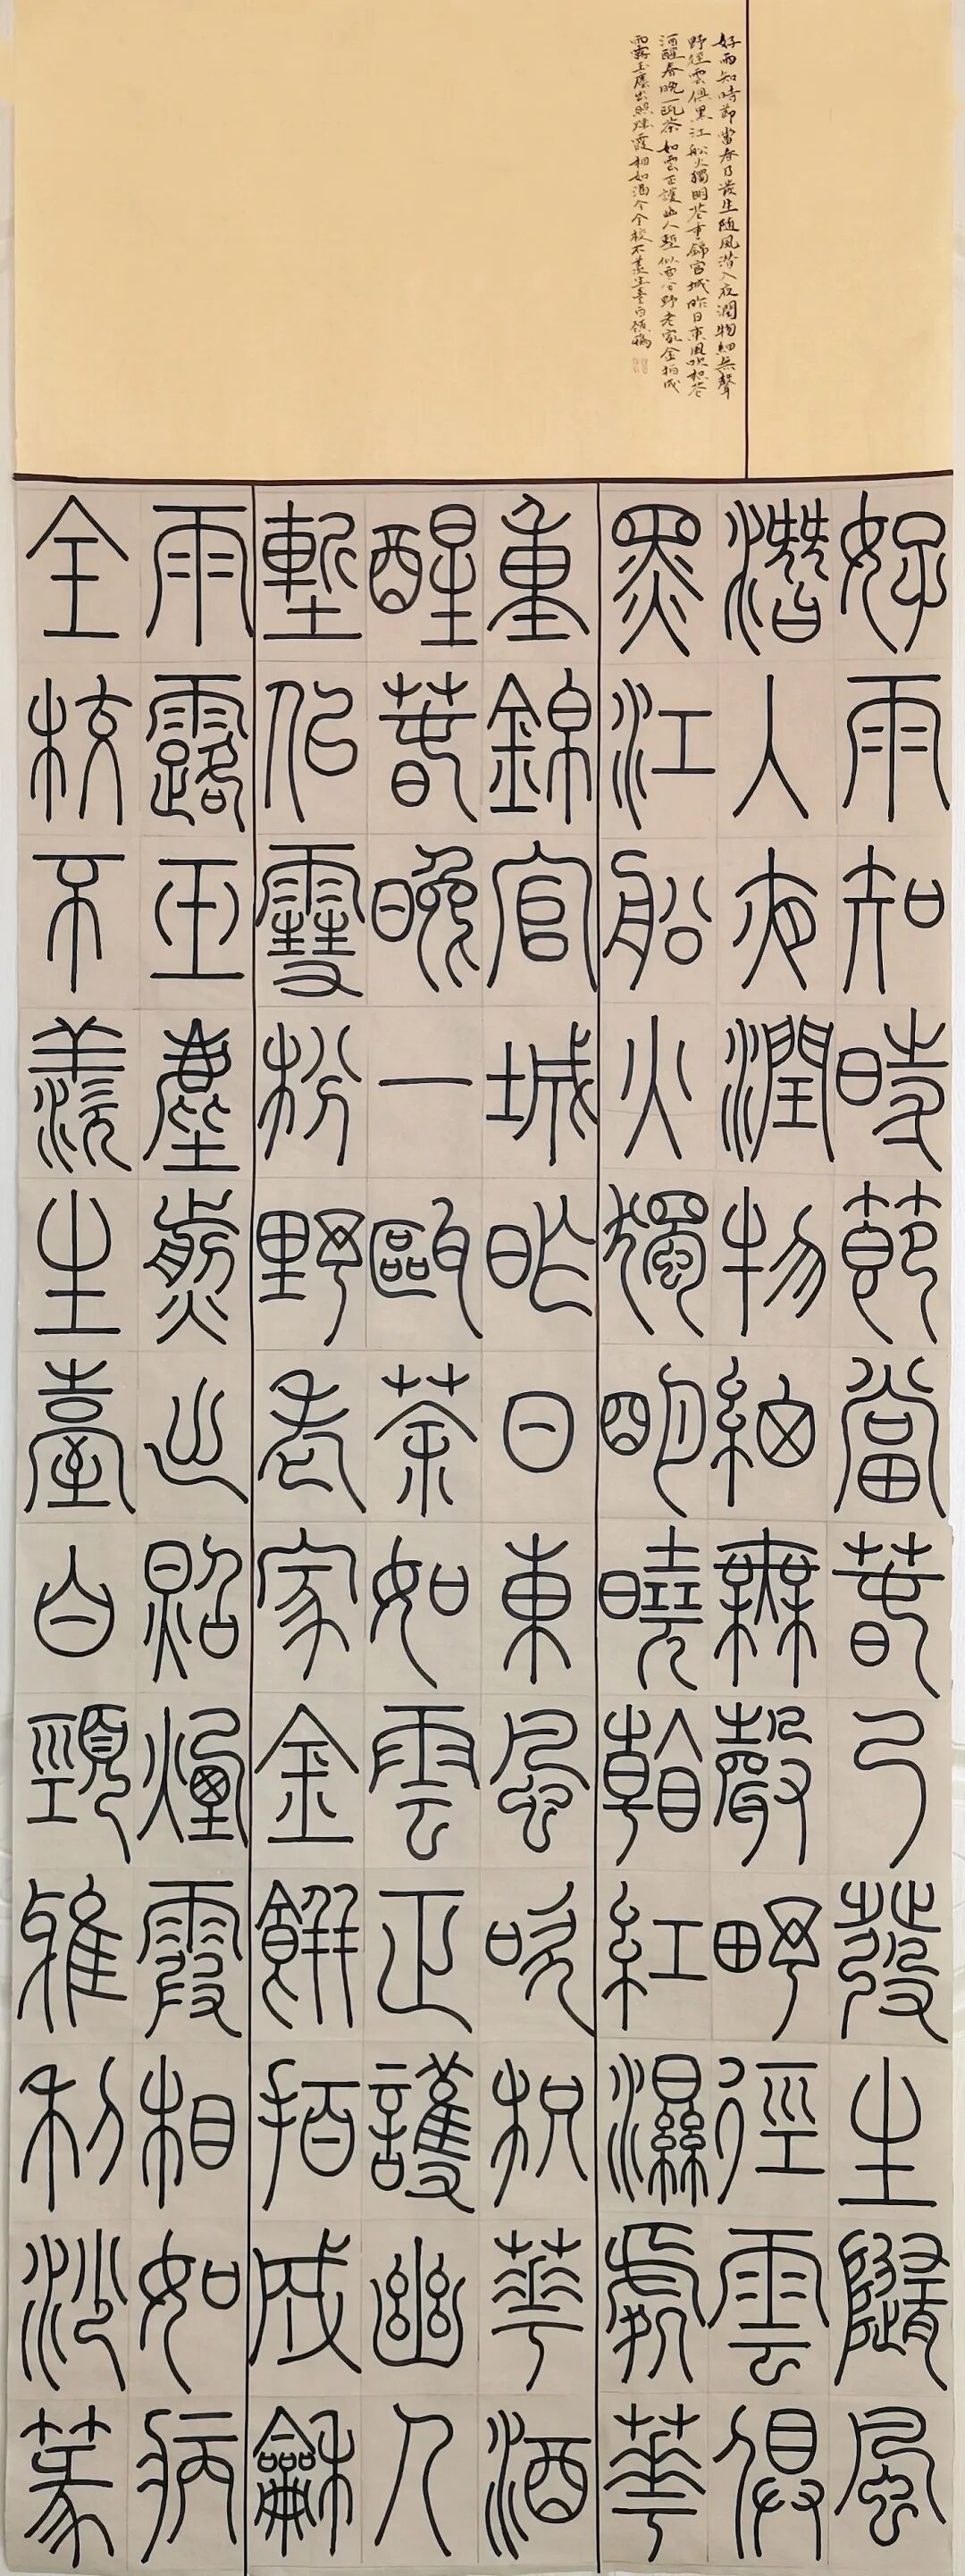 好雨知時節當春乃發生隨風潛入夜潤物細無聲
野徑雲俱黑江船火獨明花重錦官城昨日東風吹枳花
酒醒春晚一甌茶如雲正護幽人塹似雪分野老家金拍成
雨露玉塵出照煙霞相如渴今全校不羨生臺白頸鴉
好雨知時節當春乃發生隨風
潛入夜潤物細無聲野徑雲俱
黑江船火獨明曉看紅濕處花
重錦官城昨日東風吹枳花酒
醒春晚一甌茶如雲正護幽人
塹似雪枌野老家金餅拍成龢
雨露玉塵煎出照煙霞相如病
全校不羨生臺白頸雅利沙篆